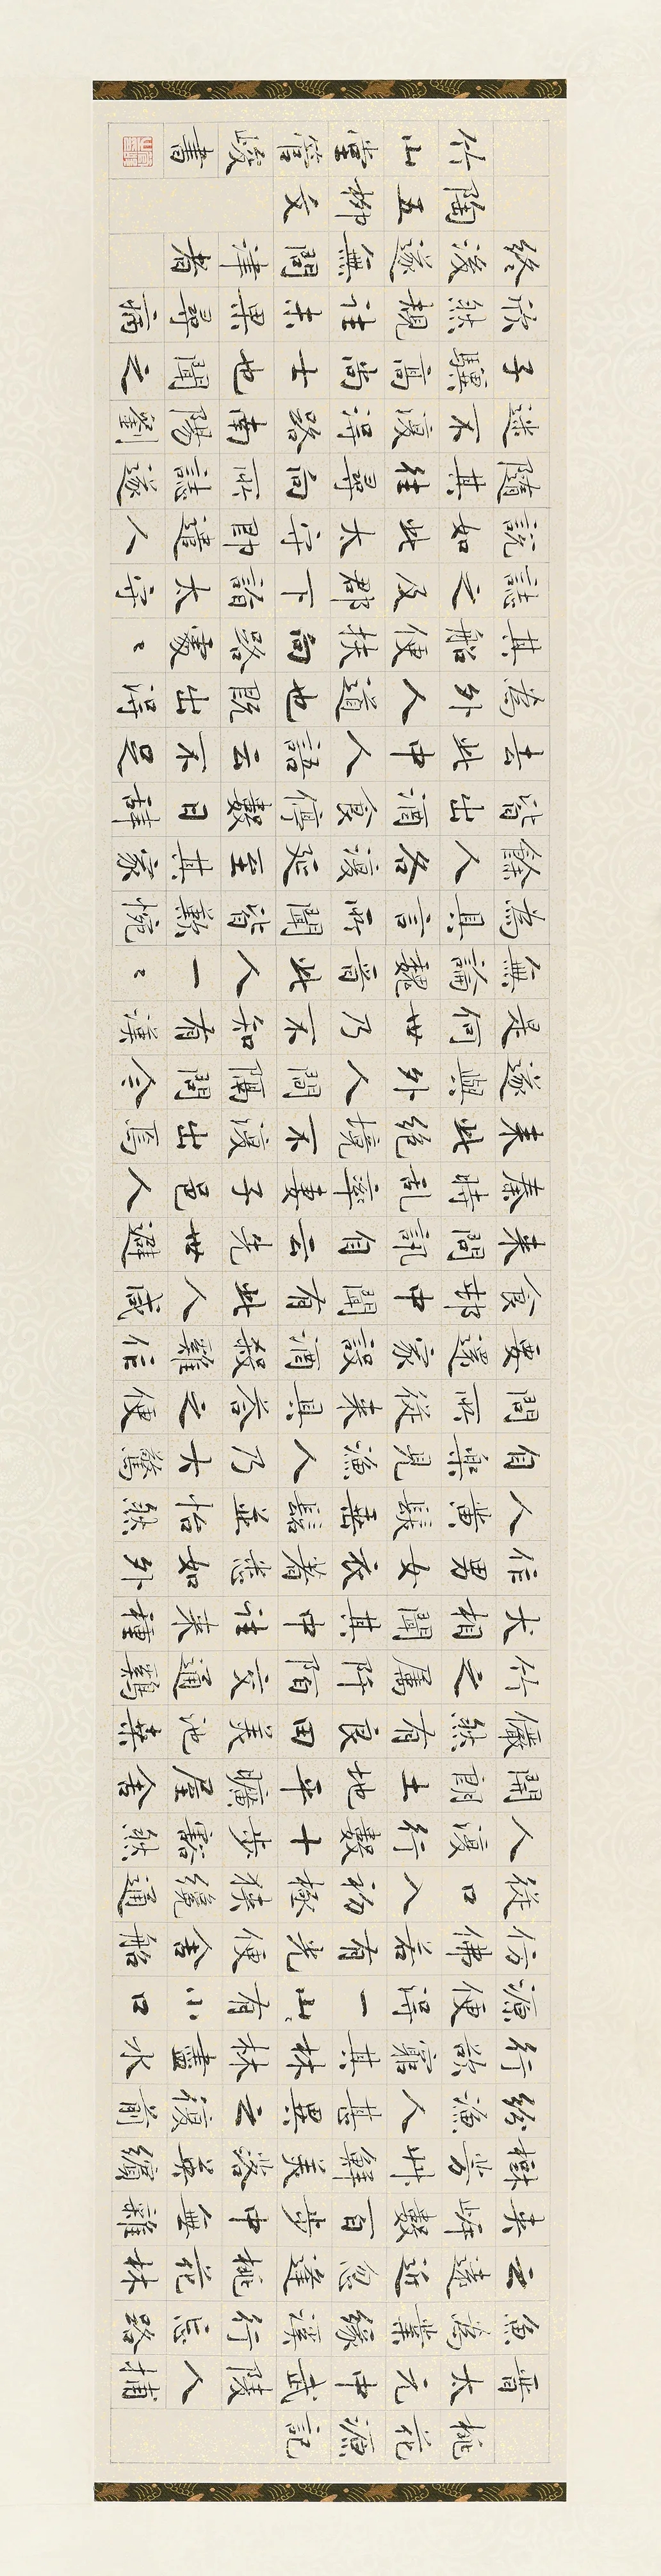 桃花源記
晉太元中武陵人捕
魚為業緣溪行忘路
之遠近忽逢桃花林
夾岸數百步中無雜
樹芳艸鮮美落英繽
紛漁人甚異之復前
行欲窮其林林盡水
源便得一山有小口
仿佛若有光便舍船
從口入初極狹纔通
人復行數十步豁然
開朗土地平曠屋舍
儼然有良田美池桑
竹之屬阡陌交通鷄
犬相聞其中往来種
作男女衣著悉如外
人黃髮垂髫並怡然
自樂見漁人乃大驚
問所從来具答之便
要還家設酒殺雞作
食邨中聞有此人咸
来問訊自云先世避
秦時亂率妻子邑人
来此絕境不復出焉
遂與外人間隔問今
是何世乃不知有漢
無論魏晉此人一〻
為具言所聞皆歎惋
餘人各復延至其家
皆出酒食停數日辭
去此中人語云不足
為外人道也既出得
其船便扶向路處〻
誌之及郡下詣太守
說如此太守即遣人
隨其往尋向所誌遂
迷不復得路南陽劉
子驥高尚士也聞之
欣然規往未果尋病
終後遂無問津者
陶五柳文
竹山堂管峻書